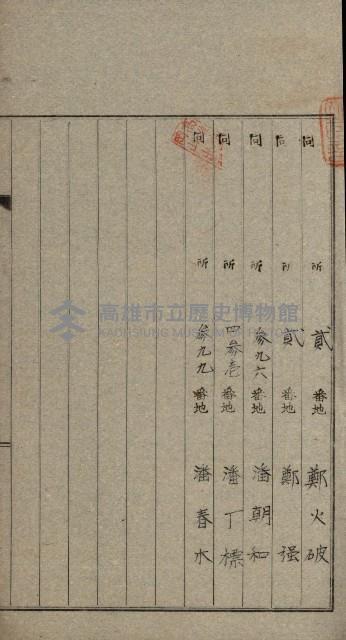 同所貳番地鄭火破
同所貳番地鄭强
同所參九六番地潘朝和
同所四參壱番地潘丁標
同所參九九番地潘春水
高雄市立歷史博物館
KAOHSIUNG MUSEUM OF HISTORY